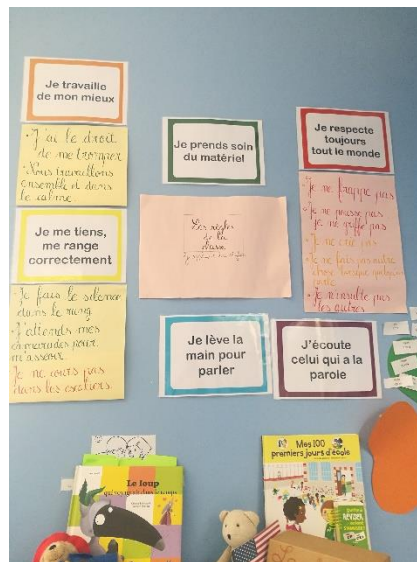 Je travaille
de mon mieux
• J'ai le droit
de me tromper
• Nous travaillons
ensemble et dans
le calme.
Je me tiens,
me range
correctement
• Je fais le silence
dans le rang
• J'attends mes
camarades pour
m'asseoir.
Je ne cours pas
dans les escaliers.
Je prends soin
du matériel
Les règles
de la
classe
Je lève la
main pour
parler
J'écoute
celui qui a la
parole
Je respecte
toujours
tout le monde
• Je ne frappe pas
• Je ne pousse pas
je ne griffe pas
• Je ne crie pas
• Je ne fais pas autre
chose lorsque quelqu'un
parle
• Je n'insulte pas
les autres.
Le loup
Mes 100
premiers jours d'école